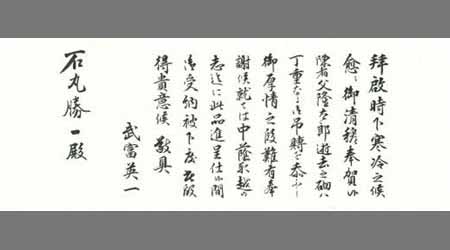 拝啓時下寒冷之候
愈々御清穆奉賀候
陳者父隆太郎逝去之砌は
丁重なる御吊賻を忝ふし
御厚情之段難有奉
謝候就ては中蔭取越の
志迄に此品進呈仕候間
御受納被下度右御
得貴意候 敬具
武富英一
石丸勝一殿